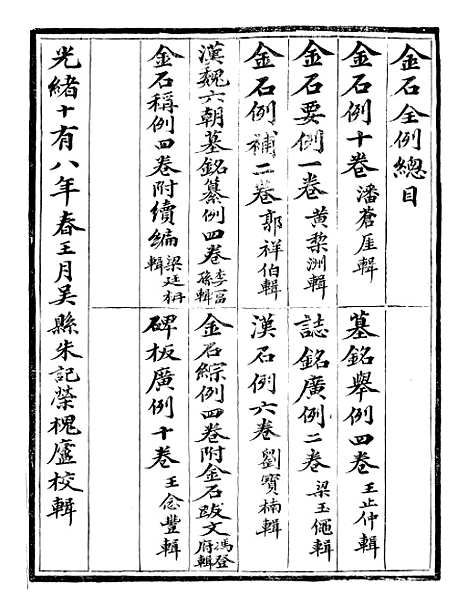 金石全例總目
金石例十卷 潘蒼厓輯
墓銘舉例四卷 王止仲輯
金石要例一卷 黃棃洲輯
誌銘廣例二卷 梁玉繩輯
金石例補二卷 郭祥伯輯
漢石例六卷 劉寶楠輯
漢魏六朝墓銘纂例四卷 李富孫輯
金石綜例四卷附金石跋文 馮登府輯
金石稱例四卷附續編 梁廷枏輯
碑板廣例十卷 王念豐輯
光緒十有八年春王月吳縣朱記榮槐廬校輯